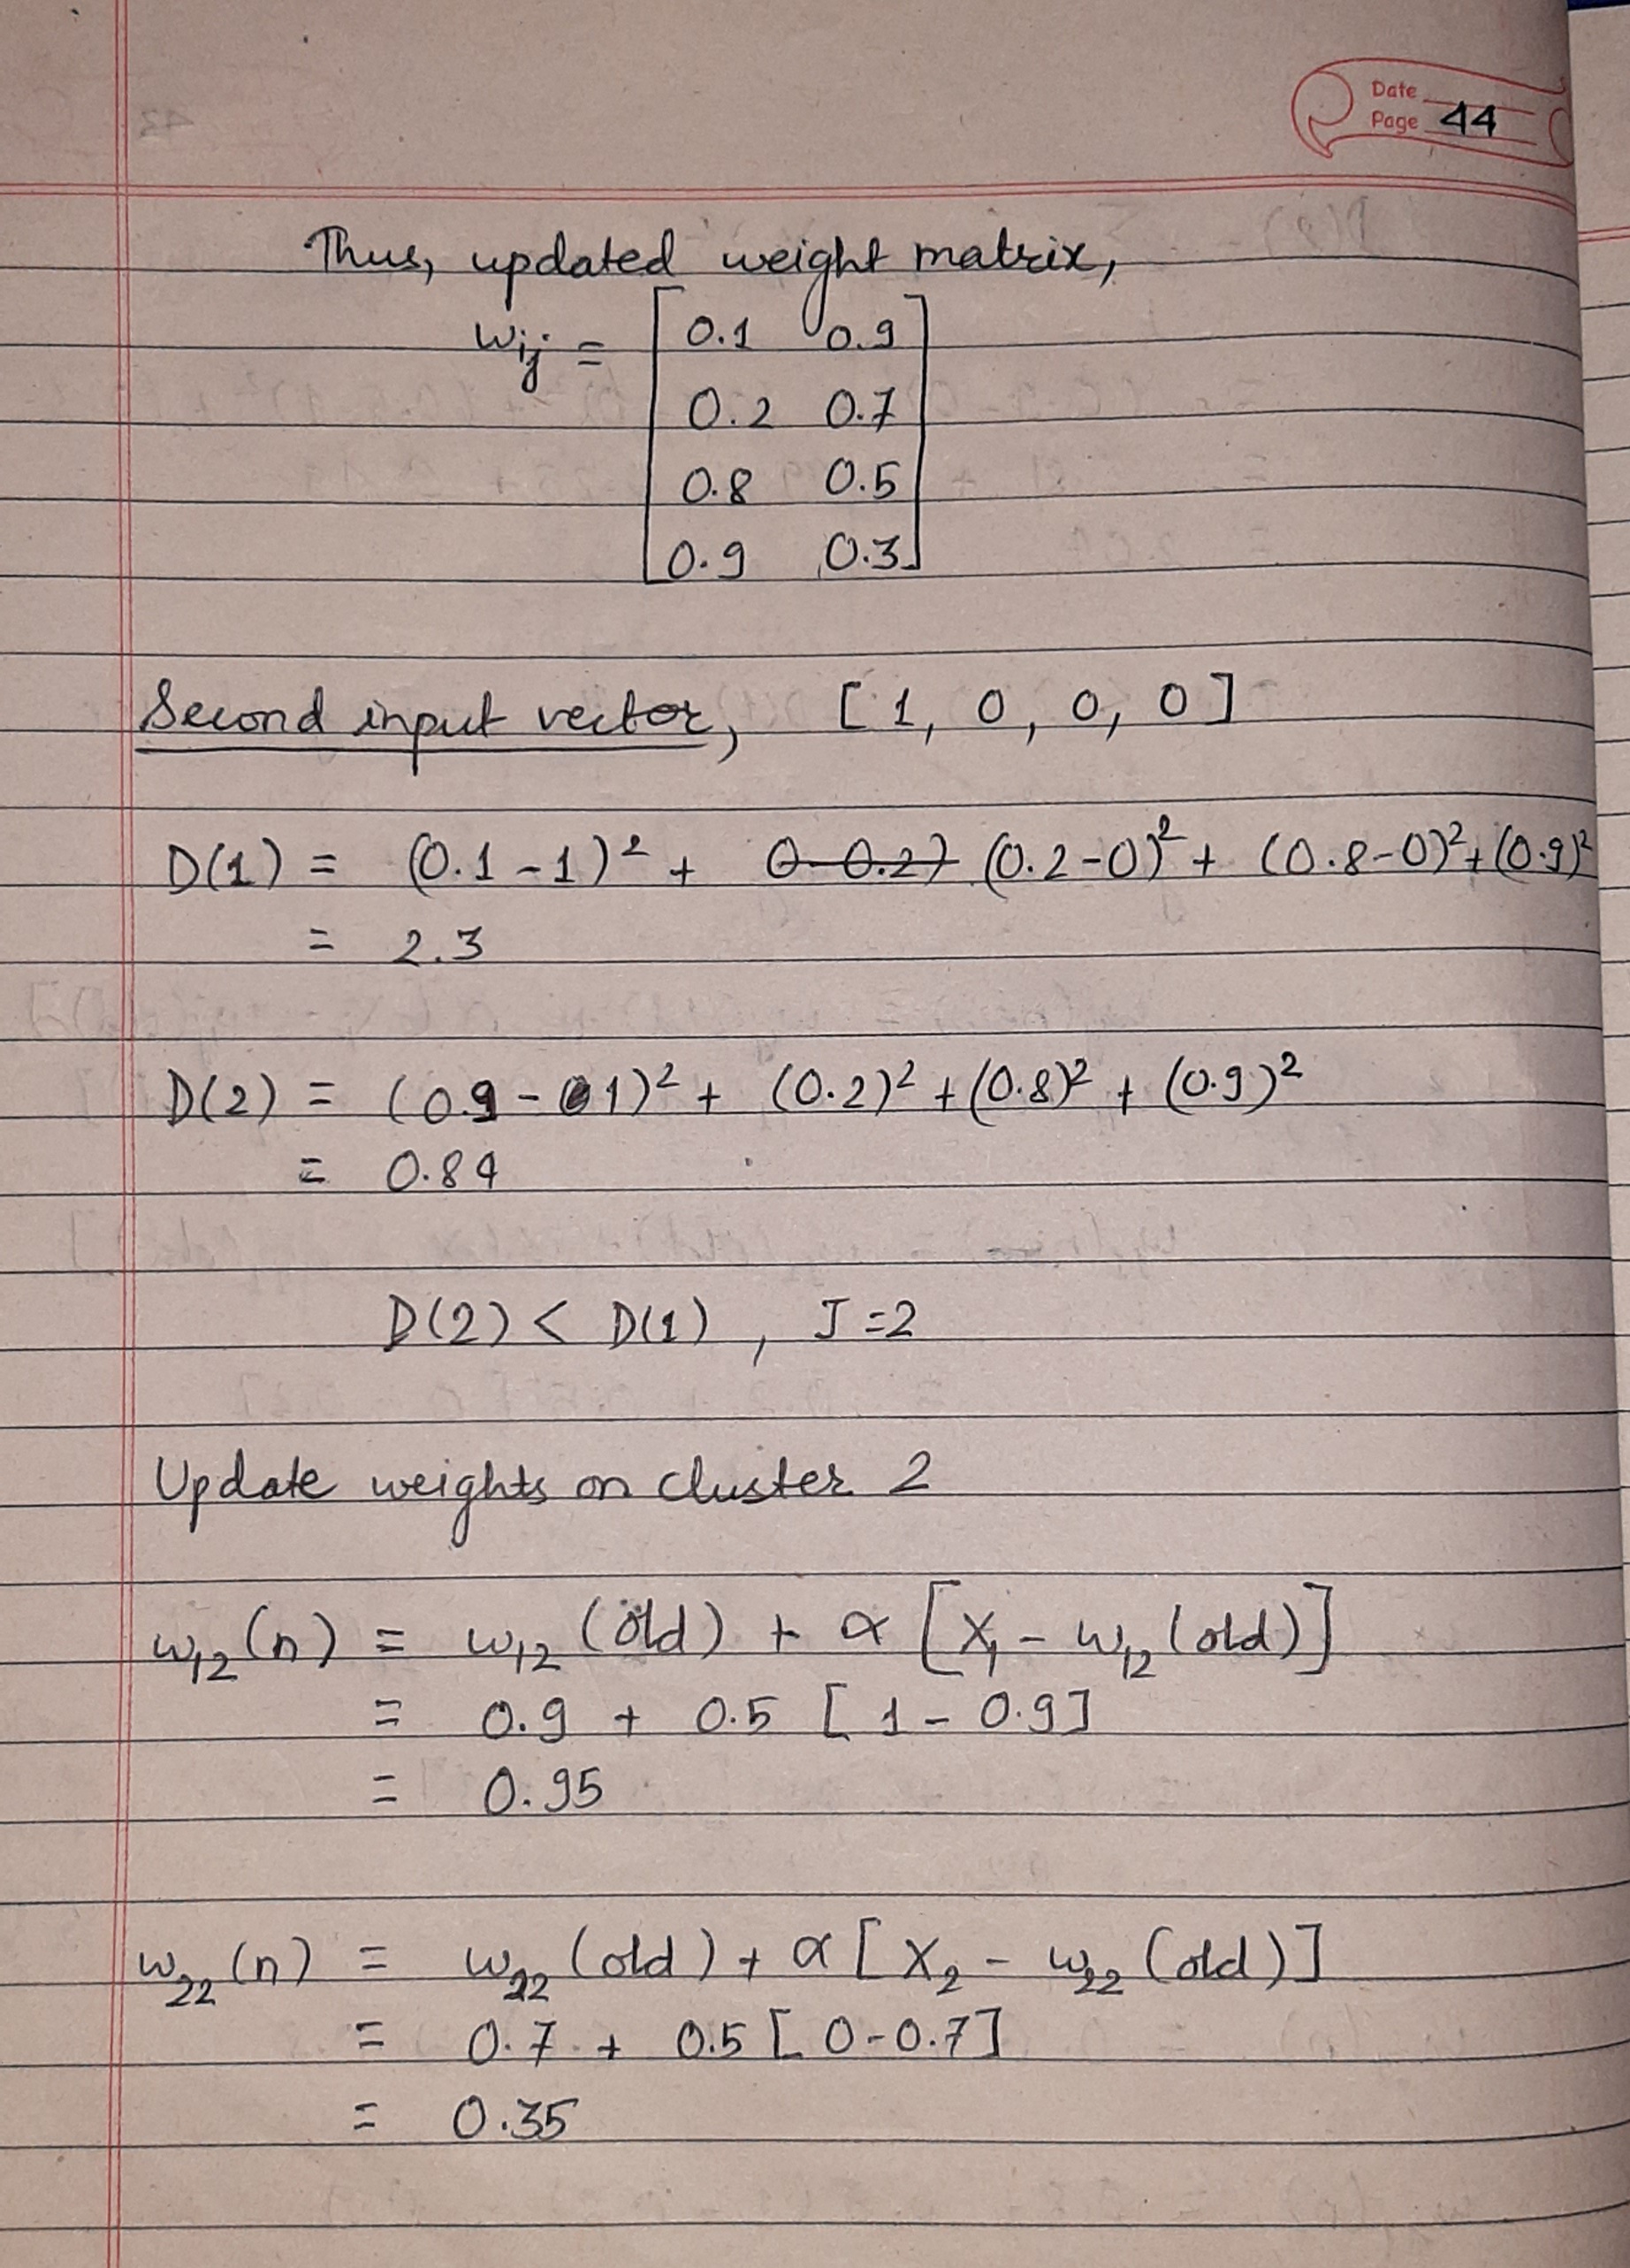 Date
Page 44
Thus, updated weight matrix,
wij = [0.1 0.9
0.2 0.7
0.8 0.5
0.9 0.3]
Second input vector, [1, 0, 0, 0]
D(1) = (0.1-1)² + 0-0.2) (0.2-0)² + (0.8-0)² + (0.9)²
= 2.3
D(2) = (0.9 - 1)² + (0.2)² + (0.8)² + (0.9)²
= 0.84
D(2) < D(1), J=2
Update weights on cluster 2
w₁₂(n) = w₁₂(old) + α[x₁ - w₁₂(old)]
= 0.9 + 0.5 [1 - 0.9]
= 0.95
w₂₂(n) = w₂₂(old) + α[x₂ - w₂₂(old)]
= 0.7 + 0.5 [0-0.7]
= 0.35